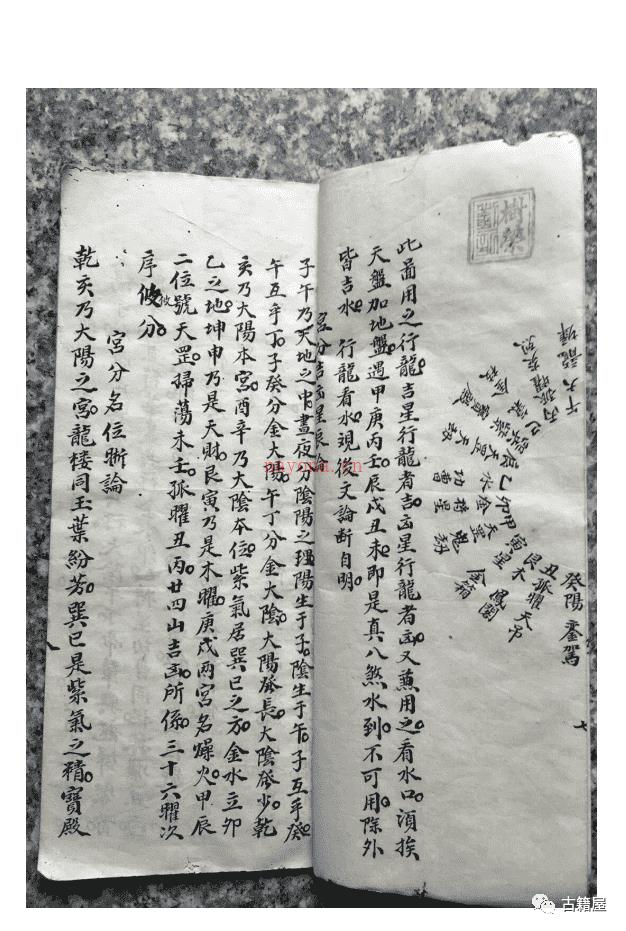 此啚用之行龍吉星行龍者吉凶星行龍者凶又兼用之看水口須挨
天盤加地盤遇甲庚丙壬辰戌丑未即是真八煞水到不可用除外
皆吉水　行龍看水現後文論斷自明
宮分吉凶星辰論
子午乃天地之中晝夜分陰陽之理陽生于子陰生于午子互乎癸
午互乎丁子癸分金大陽午丁分金大陰大陽發長大陰發少乾
亥乃大陽本宮酉辛乃大陰本位紫氣居巽巳之方金水立卯
乙之地坤申乃是天財艮寅乃是木曜庚戌兩宮名燥火甲辰
二位號天罡掃蕩未壬孤曜丑丙廿四山吉凶所係三十六曜次
序攸分
宮分名位晰論
乾亥乃大陽之宮龍楼同玉葉紛芳巽巳是紫氣之精寶殿
癸陽銮駕
丑孤曜天弔
艮木鳳閣
寅星金箱
樹
七
nayona.cn
古籍屋